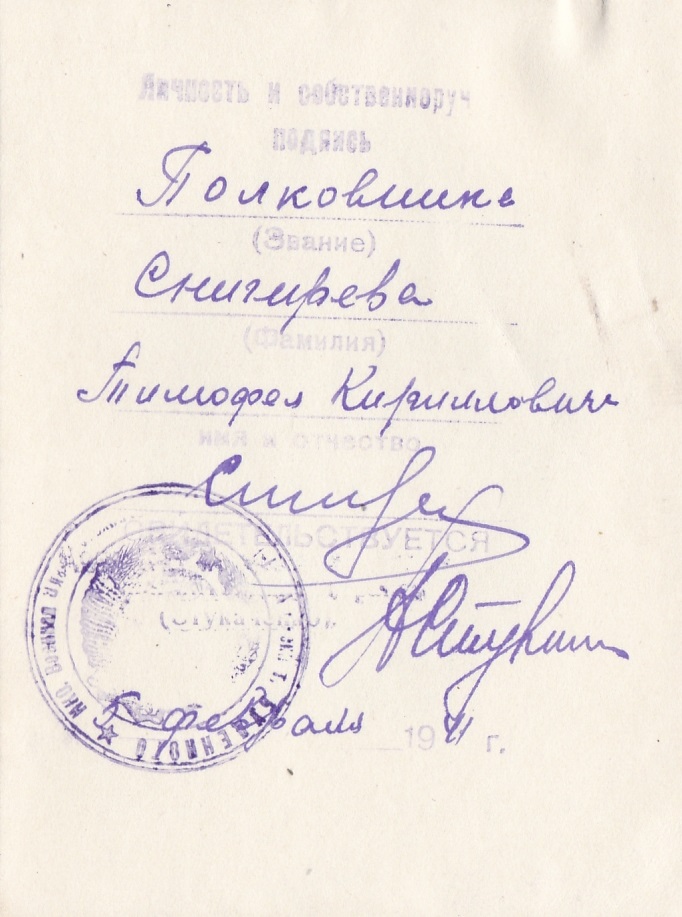 Личность и собственноруч
подпись
Полковника
(Звание)
Снигирева
(Фамилия)
Тимофея Кирилловича
имя и отчество
СВИДЕТЕЛЬСТВУЕТСЯ
(Стукаченко)
5 февраля 19 г.
БУДЕННОГО ★